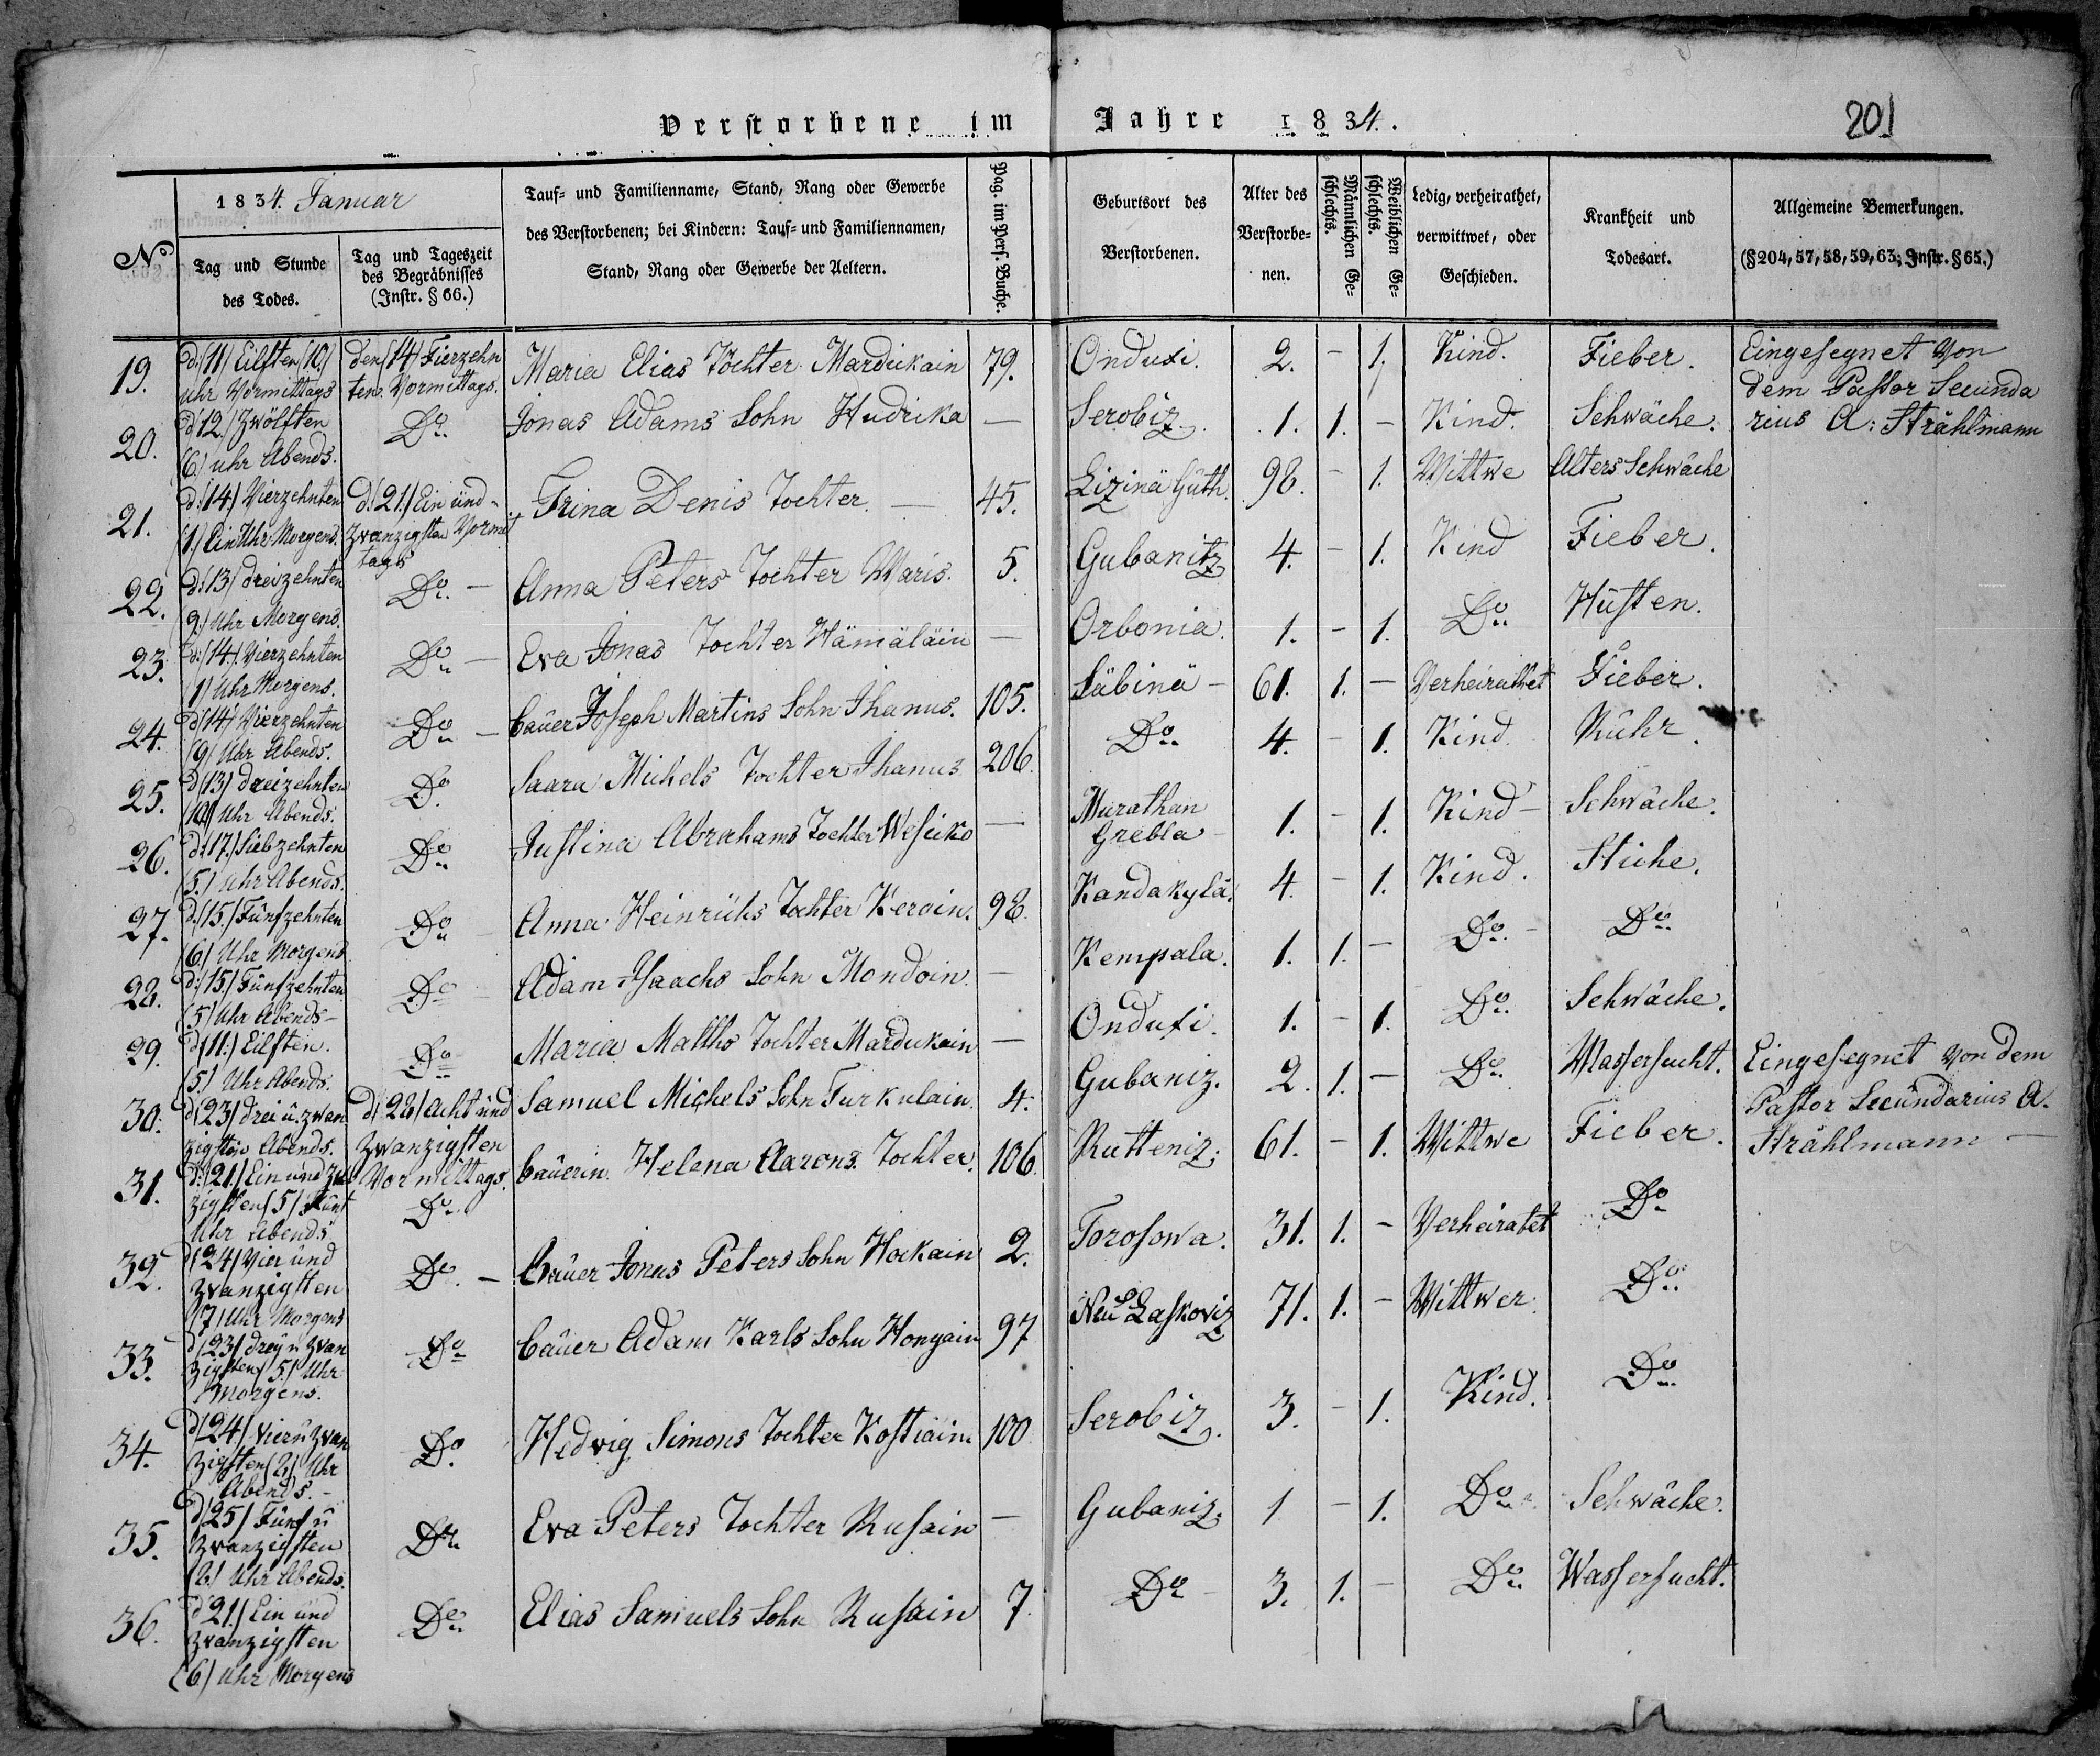 Verstorbene im Jahre 1834.
201
No
1834. Januar
Tag und Stunde
des Todes.
Tag und Tageszeit
des Begräbnisses
(Instr. § 66.)
Tauf- und Familienname, Stand, Rang oder Gewerbe
des Verstorbenen; bei Kindern: Tauf- und Familiennamen,
Stand, Rang oder Gewerbe der Aeltern.
Pag. im Pers. Buche.
Geburtsort des
Verstorbenen.
Alter des
Verstorbe-
nen.
Männlichen Ge-
schlechts.
Weiblichen Ge-
schlechts.
Ledig, verheirathet,
verwittwet, oder
Geschieden.
Krankheit und
Todesart.
Allgemeine Bemerkungen.
(§ 204, 57, 58, 59, 63; Instr. § 65.)
19.
d. (11) Eilften (10)
uhr Vormittags
den (14) Fierzehn
ten Vormittags.
Maria Elias Tochter Mardukain
79.
Ondusi.
2. - 1.
Kind.
Fieber.
Eingesegnet Von
dem Pastor Secunda
rius A: Strählmann
20.
d 12.) Zwölften
(6.) uhr Abends.
Do
Jonas Adams Sohn Hudrika
—
Serobiz.
1. 1. -
Kind.
Schwäche.
21.
d. (14.) Vierzehnten
(1.) Ein Uhr Morgens.
d. (21.) Ein und-
zwanzigsten Vormit
tags
Trina Denis Tochter. —
45.
Lizinä Guth.
98. - 1.
Wittwe
Alters Schwäche
22.
d. (13) dreizehnten
9.) Uhr Morgens.
Do. —
Anna Peters Tochter Waris.
5.
Gubanitz
4. - 1.
Kind
Fieber.
23.
d. (14.) Vierzehnten
(1) Uhr Morgens.
Do —
Eva Jonas Tochter Hämäläin
—
Orbonia.
1. - 1.
Do
Husten.
24.
d (14) Vierzehnten
(9) Uhr Abends.
Do —
bauer Joseph Martins Sohn Ihanus.
105.
Säbinä -
61. 1. -
Verheirathet
Fieber.
25.
d (13) dreizehnten
(10) Uhr Abends.
Do
Saara Michels Tochter Ihanus
206.
Do.
4. - 1.
Kind.
Ruhr.
26.
d. 17.) Siebzehnten
(5.) uhr Abends.
Do
Justina Abrahams Tochter Wesiko
—
Murathan
Grebla -
1. - 1.
Kind -
Schwäche.
27.
d. (15.) Fünfzehnten
(6.) Uhr Morgens
Do
Anna Heinrichs Tochter Keroin.
98.
Kandakylä.
4. - 1.
Kind.
Stiche.
28.
d: (15) Fünfzehnten
(5) Uhr Abends-
Do
Adam Isaachs Sohn Mondoin.
—
Kempala.
1. 1. -
Do. -
Do
29.
d (11:) Eilften.
(5.) Uhr Abends.
Do
Maria Matths Tochter Mardukain
—
Ondusi.
1. - 1.
Do
Schwäche.
30.
d (23) drei u. zwan
zigsten Abends.
d (28) Acht und
zwanzigsten
Vormittags.
Samuel Michels Sohn Turkulain.
4.
Gubaniz.
2. 1. -
Do
Wassersucht.
Eingesegnet Von dem
Pastor Secundarius A.
Strählmann —
31.
d: (21.) Ein und zwan
zigsten (5)
Uhr Abends
Do
bäuerin Helena Aarons Tochter.
106.
Rutteniz.
61. - 1.
Wittwe
Fieber.
32.
d (24) Vier und
zwanzigsten
(7) Uhr Morgens
Do. -
bauer Jonas Peters Sohn Hockain
2.
Torosowa.
31. 1. -
Verheiratet
Do
33.
d (23) drey u zwan
zigsten (5.) Uhr
Morgens.
Do
bauer Adam Karls Sohn Honyain
97
Neu Laskoviz
71. 1. -
Wittwer.
Do
34.
d (24) vier u zwan
zigsten (2) Uhr
Abends. -
Do.
Hedvig Simons Tochter Kostiain
100
Serobiz.
3. - 1.
Kind.
Do
35.
d (25) Fünf u
zwanzigsten
Uhr Abends.
Do
Eva Peters Tochter Rusain
—
Gubaniz.
1 - 1.
Do
Schwäche.
36.
d 21.) Ein und
zwanzigsten
(6.) Uhr Morgens
Do
Elias Samuels Sohn Rusain
7.
Do -
3. 1. -
Do
Wassersucht.